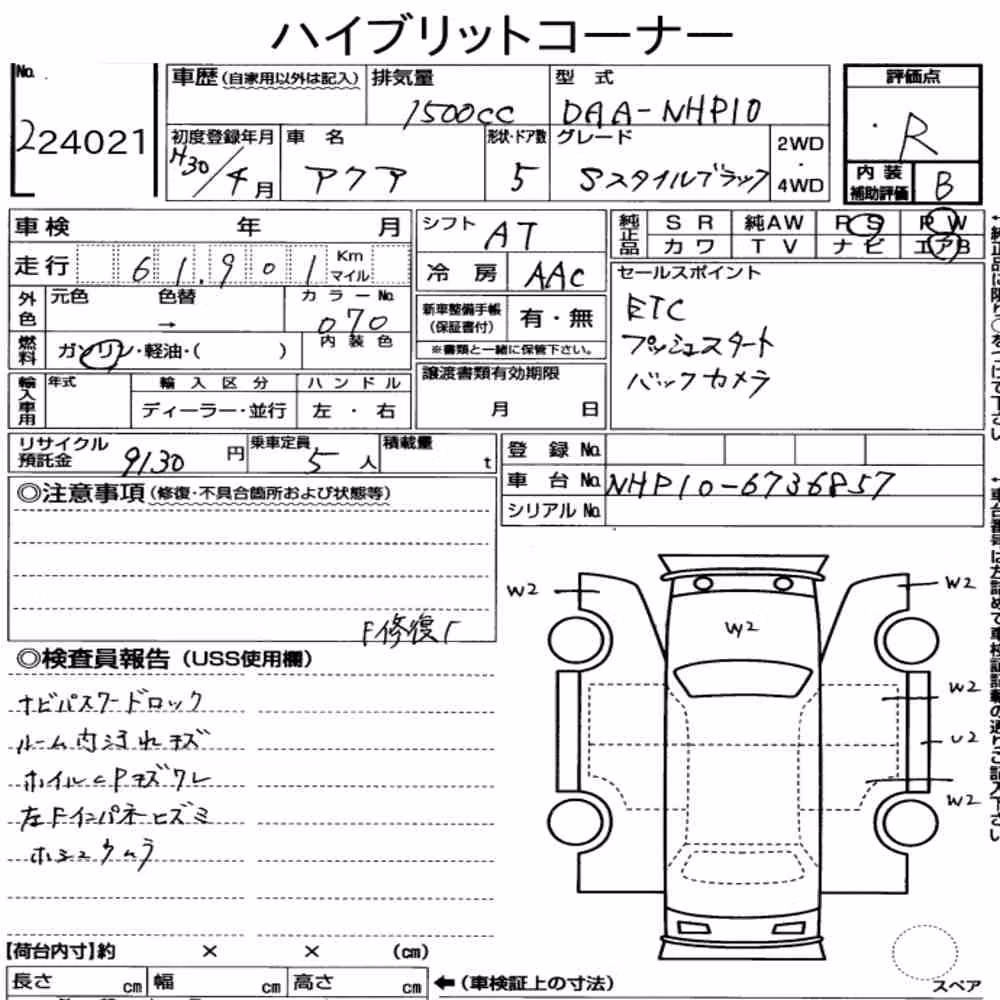 ハイブリットコーナー
No. 車歴 (自家用以外は記入) 排気量 型式 評価点
224021
1500cc DAA-NHP10 R
初度登録年月 車名 形状・ドア数 グレード 2WD・4WD
H30/4月 アクア 5 Sスタイルブラック
内装補助評価 B
車検 年 月
走行 61,901 Km マイル
外色 元色 色替 → カラーNo. 070
内装色
燃料 ガソリン・軽油・( )
輸入車用 年式 輸入区分 ハンドル
ディーラー・並行 左・右
シフト AT
冷房 AAC
新車整備手帳 (保証書付) 有・無
※書類と一緒に保管下さい。
譲渡書類有効期限
月 日
純正品 SR 純AW PS PW
カワ TV ナビ エアB
セールスポイント
ETC
プッシュスタート
バックカメラ
←純正品に限り○をつけて下さい
リサイクル預託金 9130円 乗車定員 5人 積載量 t
登録No.
車台No. NHP10-6736857
シリアルNo.
←車台番号は左詰めで車検証記載の通りご記入下さい
◎注意事項 (修復・不具合箇所および状態等)
F修復
◎検査員報告 (USS使用欄)
ナビパスワードロック
ルーム内汚れキズ
ホイルCPキズワレ
左Fインパネヒズミ
ホシュウムラ
W2 W2
W2
W2
U2
W2
【荷台内寸】約 × × (cm)
長さ cm 幅 cm 高さ cm ←(車検証上の寸法)
スペア